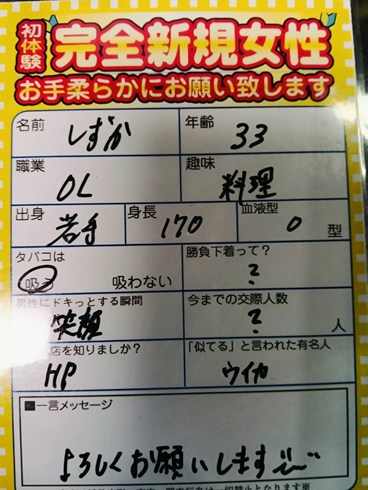 初体験
完全新規女性
お手柔らかにお願い致します
名前 しずか 年齢 33
職業 OL 趣味 料理
出身 岩手 身長 170 血液型 O 型
タバコは 吸う 吸わない
勝負下着って? ?
男性にドキっとする瞬間 笑顔
今までの交際人数 ? 人
店を知りましか? HP
「似てる」と言われた有名人 ウイカ
■一言メッセージ
よろしくお願いします